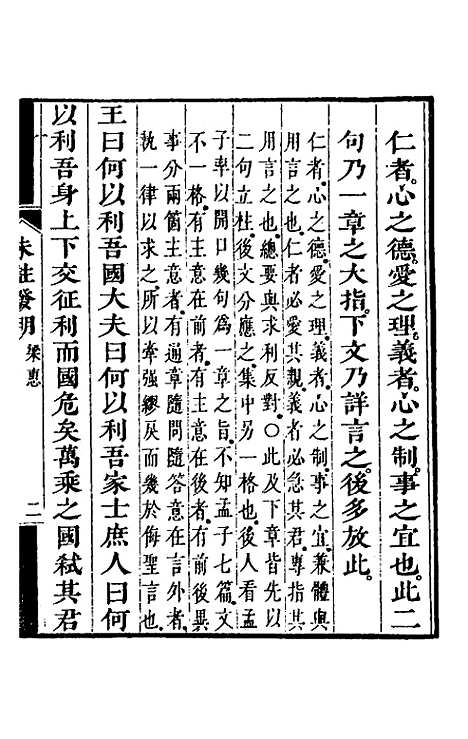 仁者。心之德。愛之理。義者。心之制。事之宜也。此二
句乃一章之大指。下文乃詳言之。後多放此。
仁者。心之德。愛之理。義者。心之制。事之宜。兼體與
用言之也。仁者必急其親。義者必急其君。專指其
用言之也。總要與求利反對。〇此及下章皆先以
二句立柱。後文分應之。集中另一格也。後人看孟
子率以開口幾句爲一章之旨。不知孟子七篇。文
不一格。有主意在前者。有主意在後者。有前後異
事分兩箇主意者。有通章隨問隨答。意在言外者。
執一律以求之。所以牽强繆戾而幾於侮聖言也。
王曰何以利吾國大夫曰何以利吾家士庶人曰何
以利吾身上下交征利而國危矣萬乘之國弒其君
朱註發明
梁惠
二